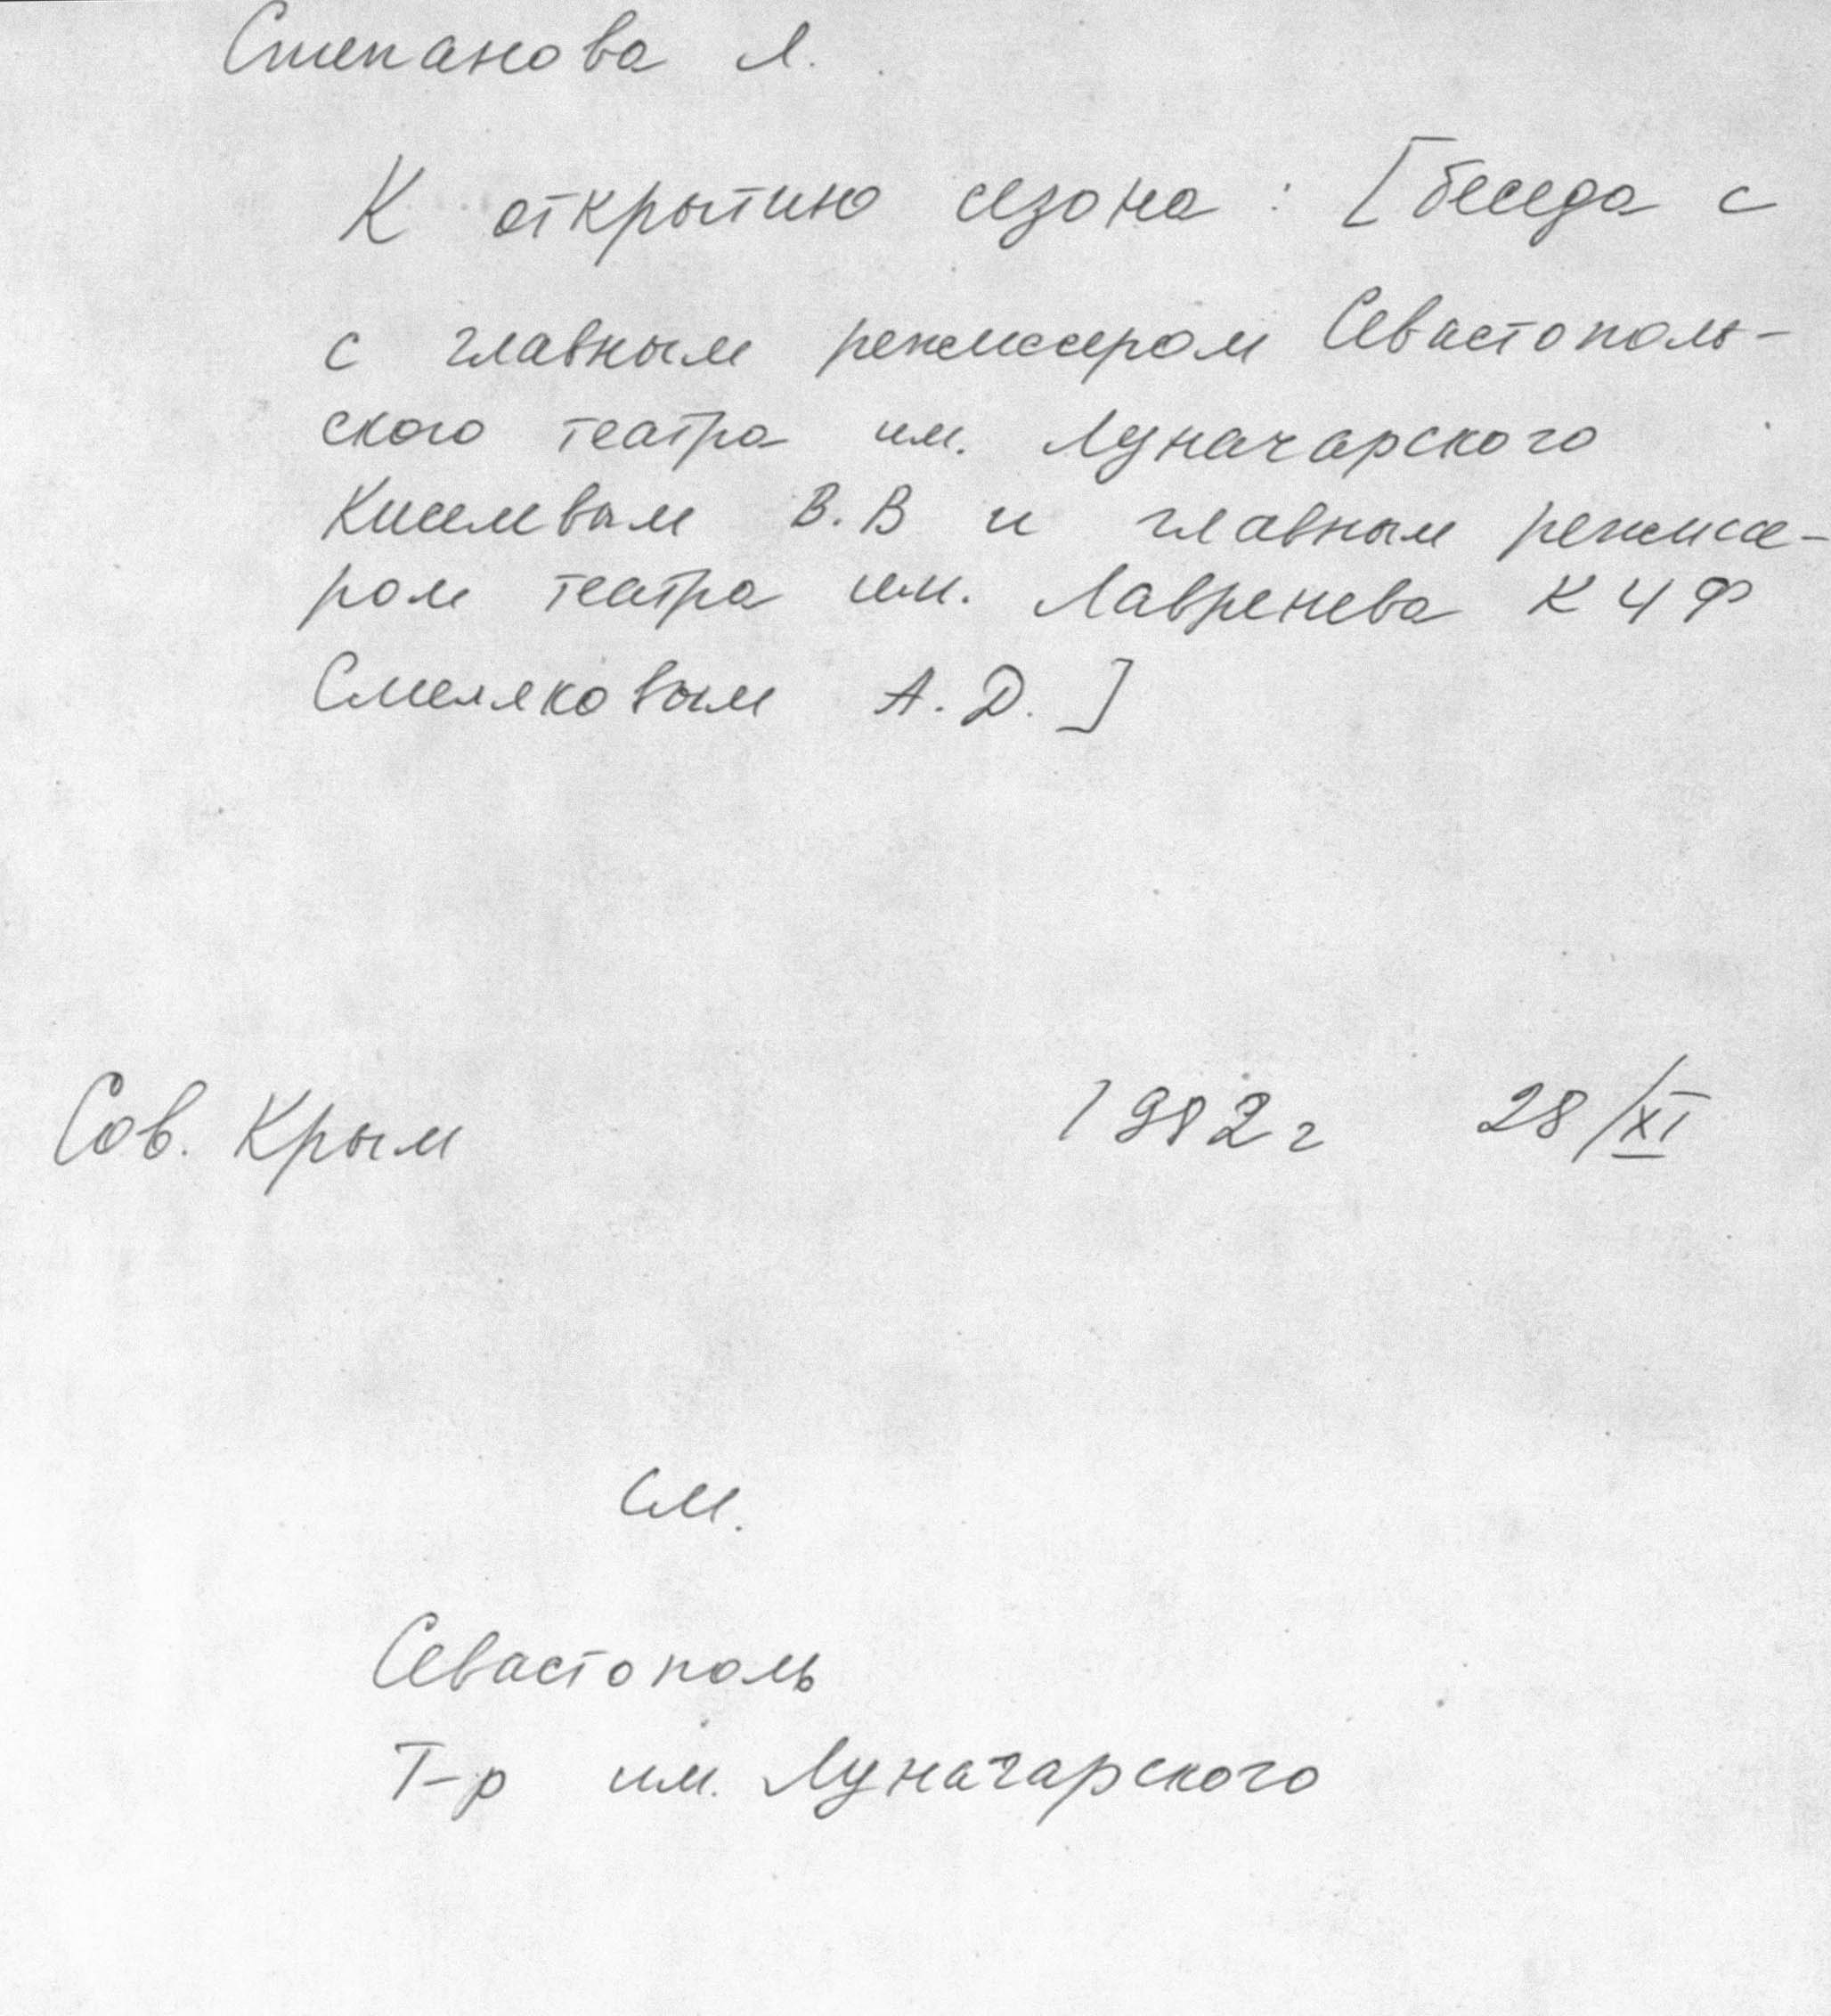 Степанова Л.
К открытию сезона : [беседа с
с главным режиссером Севастополь-
ского театра им. Луначарского
В.В и главным режиссе-
ром театра им. Лавренева КЧФ
Смеляковым А.Д.]
Сов. Крым 1982 г 28/XI
См.
Севастополь
Т-р им. Луначарского